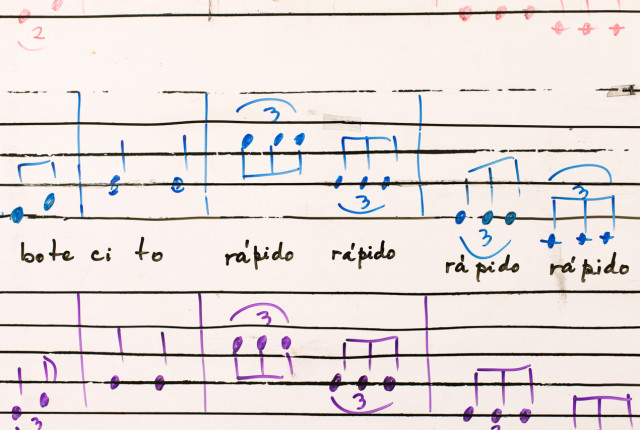 2
3
3
3
3
bote ci to rápido rápido rápido rápido
3
3
3
3